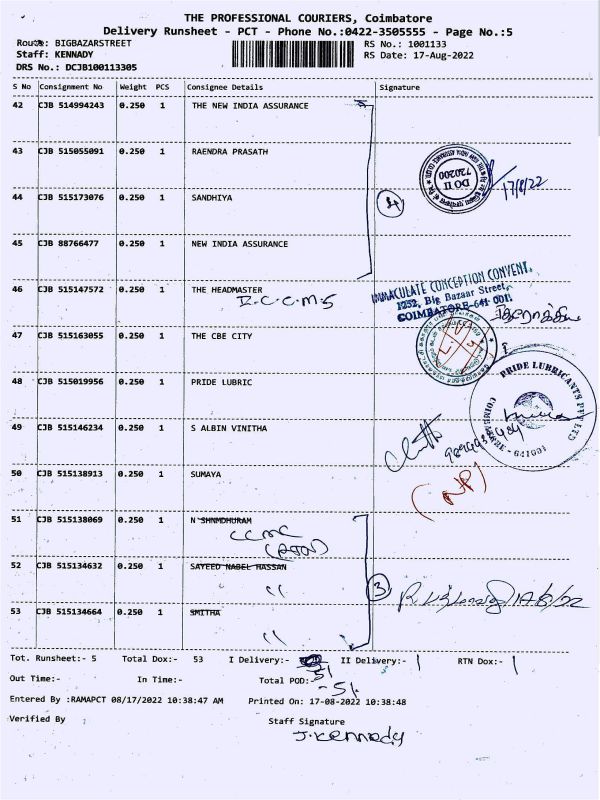 THE PROFESSIONAL COURIERS, Coimbatore
Delivery Runsheet - PCT - Phone No.:0422-3505555 - Page No.:5
Route: BIGBAZARSTREET
RS No.: 1001133
Staff: KENNADY
RS Date: 17-Aug-2022
DRS No.: DCJB100113305
S No Consignment No Weight PCS Consignee Details Signature
42 CJB 514994243 0.250 1 THE NEW INDIA ASSURANCE
43 CJB 515055091 0.250 1 RAENDRA PRASATH
DO II
720200
17/8/22
44 CJB 515173076 0.250 1 SANDHIYA
4
45 CJB 88766477 0.250 1 NEW INDIA ASSURANCE
46 CJB 515147572 0.250 1 THE HEADMASTER
I.C.C.M.S
IMMACULATE CONCEPTION CONVENT,
1252, Big Bazaar Street,
COIMBATORE-641 001.
47 CJB 515163055 0.250 1 THE CBE CITY
48 CJB 515019956 0.250 1 PRIDE LUBRIC
PRIDE LUBRICANTS PVT LTD
COIMBATORE - 641001
49 CJB 515146234 0.250 1 S ALBIN VINITHA
50 CJB 515138913 0.250 1 SUMAYA
(NP)
51 CJB 515138069 0.250 1 N SHNMDHURAM
CCMC
52 CJB 515134632 0.250 1 SAYEED NABEL HASSAN
"
3
53 CJB 515134664 0.250 1 SMITHA
"
Tot. Runsheet:- 5 Total Dox:- 53 I Delivery:- 51 II Delivery:- 1 RTN Dox:- 1
Out Time:- In Time:- Total POD:- 51
Entered By :RAMAPCT 08/17/2022 10:38:47 AM Printed On: 17-08-2022 10:38:48
Verified By Staff Signature
J. Kennady